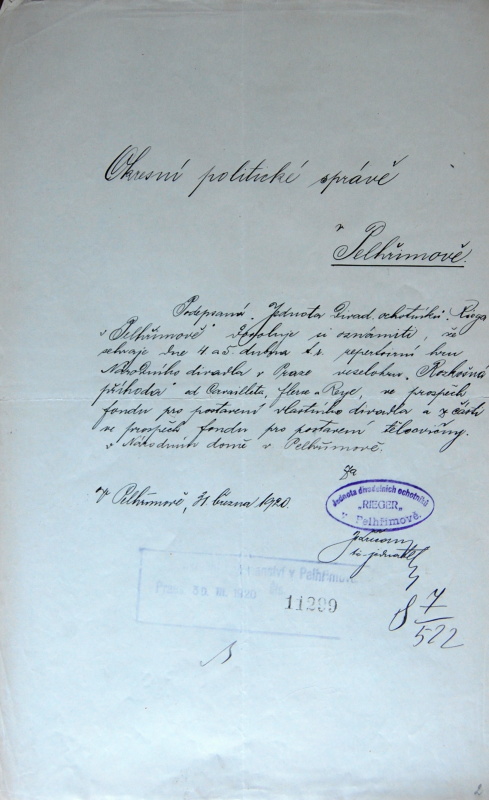 Okresní politické správě
v
Pelhřimově.
Podepsaná „Jednota Divad. ochotníků Rieger
v Pelhřimově" dovoluje si oznámiti, že
sehraje dne 4 a 5. dubna t. r. repertorní hru
Národního divadla v Praze veselohru „Rozkošná
příhoda" od , ve prospěch
fondu pro postavení vlastního divadla a z části
ve prospěch fondu pro postavení tělocvičny.
v Národním domě v Pelhřimově.
Za
V Pelhřimově, 31 března 1920.
Jednota divadelních ochotníků
„RIEGER"
v Pelhřimově.
t. č. jednatel
v Pelhřimově
1920
11299
8 7/522
2